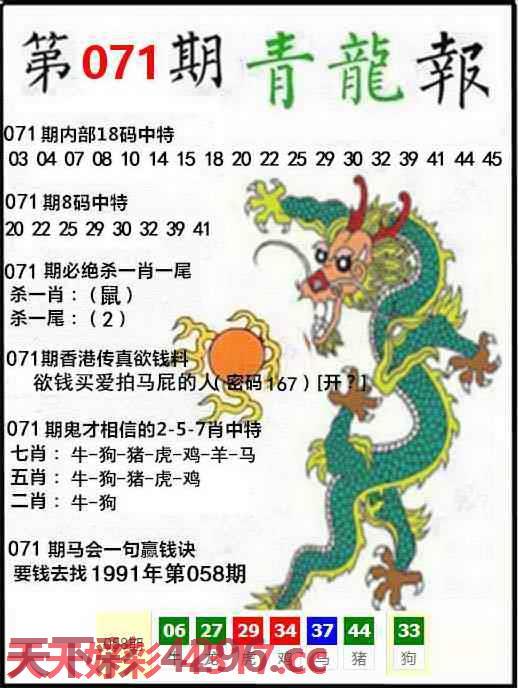 第071期青龍報
071期内部18码中特
03 04 07 08 10 14 15 18 20 22 25 29 30 32 39 41 44 45
071期8码中特
20 22 25 29 30 32 39 41
071 期必绝杀一肖一尾
杀一肖：(鼠)
杀一尾：(2)
071期香港传真欲钱料
欲钱买爱拍马屁的人(密码167)[开?]
071期鬼才相信的2-5-7肖中特
七肖：牛-狗-猪-虎-鸡-羊-马
五肖：牛-狗-猪-虎-鸡
二肖：牛-狗
071期马会一句赢钱诀
要钱去找1991年第058期
058期 06 27 29 34 37 44 33
牛 龙 虎 鸡 马 猪 狗
天天好彩4296.cc